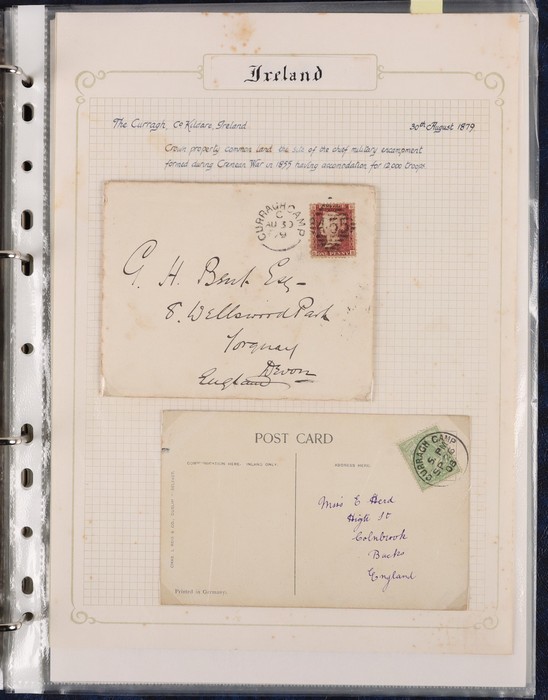 Ireland
The Curragh, Co Kildare, Ireland 30th August 1879
Crown property, common land, the site of the chief military encampment
formed during Crimean War in 1855 having accomodation for 12,000 troops.
CURRAGH CAMP
C
AU 30
79
ONE PENNY
G. H. Bent Esq
8. Wellswood Park
Torquay
Devon
England
POST CARD
ADDRESS HERE.
CURRAGH CAMP
Miss E Herd
High St
Colnbrook
Bucks
England
Printed in Germany